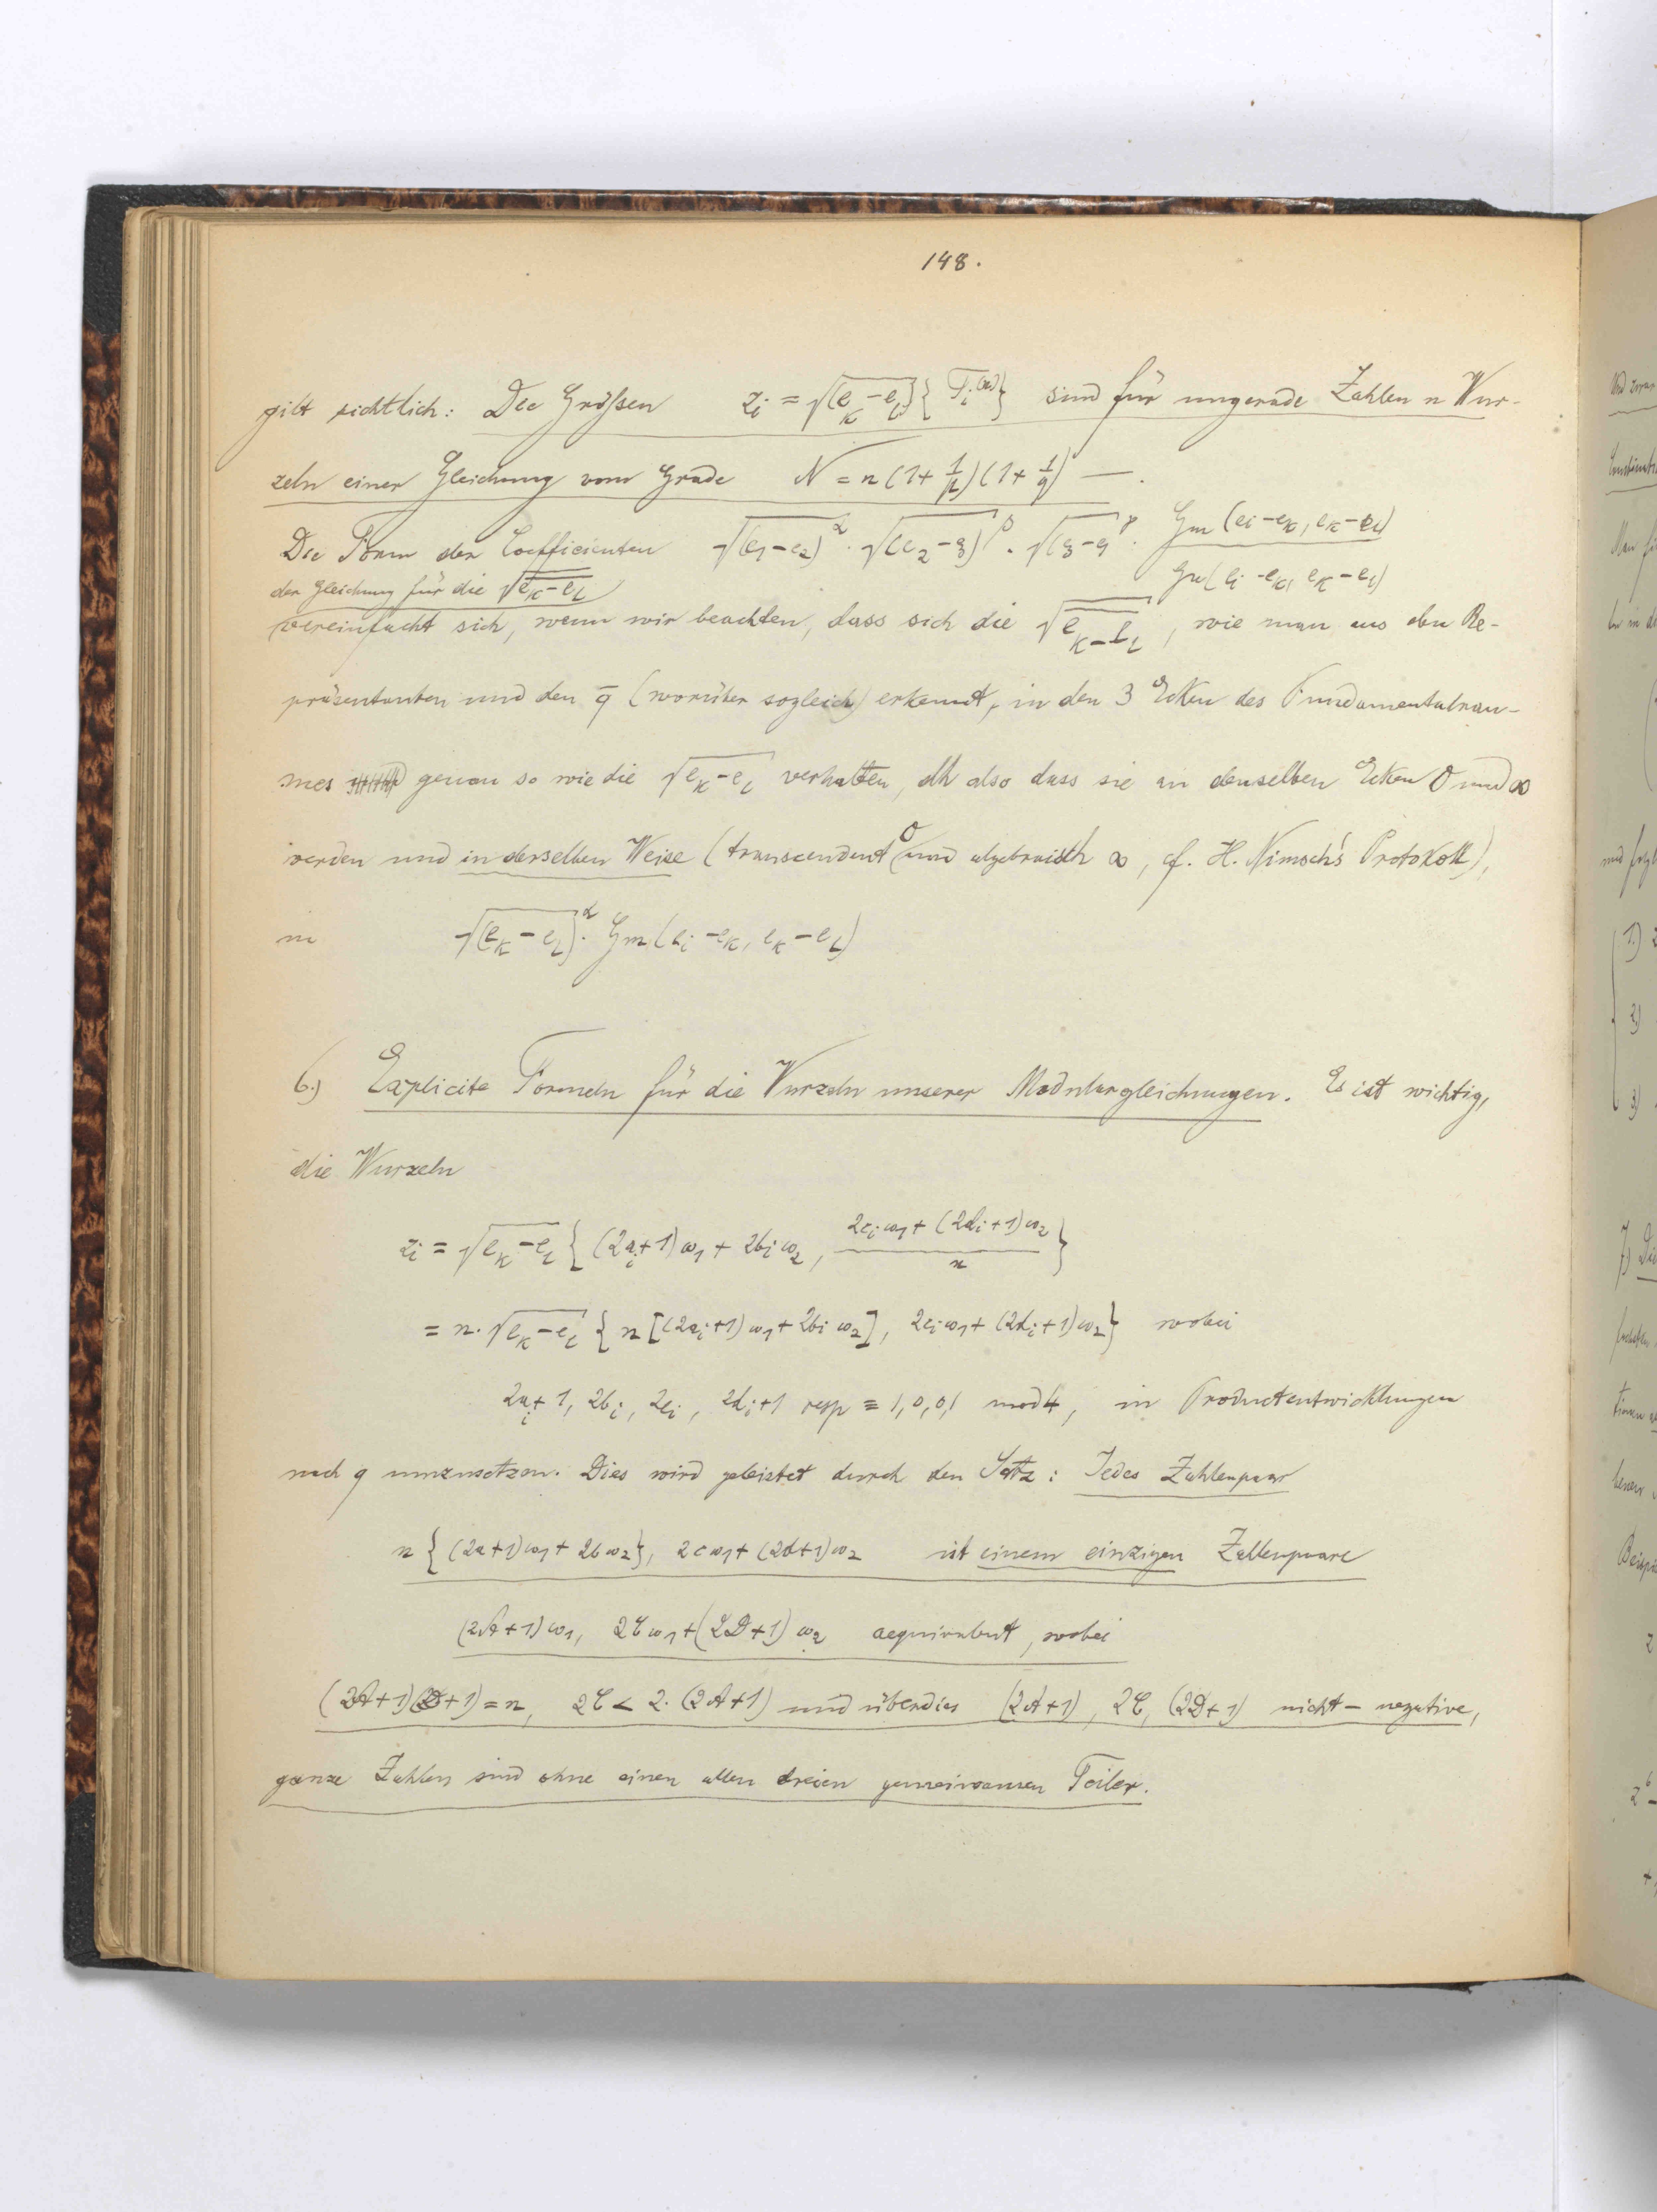 148.
gilt sichtlich: Die Größen z_i = √(e_k - e_l) { T_i^(n) } sind für ungerade Zahlen n Wur-
zeln einer Gleichung vom Grade N = n (1 + 1/p) (1 + 1/q) — .
Die Form der Coefficienten √(e_1 - e_2)^α · √(e_2 - e_3)^β · √(e_3 - e_1)^γ · Gm (e_i - e_k, e_k - e_l) / Gν (e_i - e_k, e_k - e_l)
der Gleichung für die √(e_k - e_l)
vereinfacht sich, wenn wir beachten, dass sich die √(e_k - e_l), wie man aus den Re-
präsentanten und den q (worüber sogleich) erkennt, in den 3 Ecken des Fundamentalrau-
mes genau so wie die √(e_k - e_l) verhalten, dh also dass sie an denselben Ecken 0 und ∞
werden und in derselben Weise (transcendent 0 und algebraisch ∞, cf. H. Nimsch's Protokoll),
in √(e_k - e_l)^α · Gm (e_i - e_k, e_k - e_l)
6.) Explicite Formeln für die Wurzeln unserer Modulargleichungen. Es ist wichtig,
die Wurzeln
z_i = √(e_k - e_l) { (2a_i + 1) ω_1 + 2b_i ω_2, (2c_i ω_1 + (2d_i + 1) ω_2) / n }
= n · √(e_k - e_l) { n [(2a_i + 1) ω_1 + 2b_i ω_2], 2c_i ω_1 + (2d_i + 1) ω_2 } wobei
2a_i + 1, 2b_i, 2c_i, 2d_i + 1 resp ≡ 1, 0, 0, 1 mod 4, in Productentwicklungen
nach q umzusetzen. Dies wird geleistet durch den Satz: Jedes Zahlenpaar
n { (2a + 1) ω_1 + 2b ω_2 }, 2c ω_1 + (2d + 1) ω_2 ist einem einzigen Zahlenpaare
(2A + 1) ω_1, 2C ω_1 + (2D + 1) ω_2 aequivalent, wobei
(2A + 1) (2D + 1) = n, 2C < 2. (2A + 1) und überdies (2A + 1), 2C, (2D + 1) nicht - negative,
ganze Zahlen sind ohne einen allen dreien gemeinsamen Teiler.